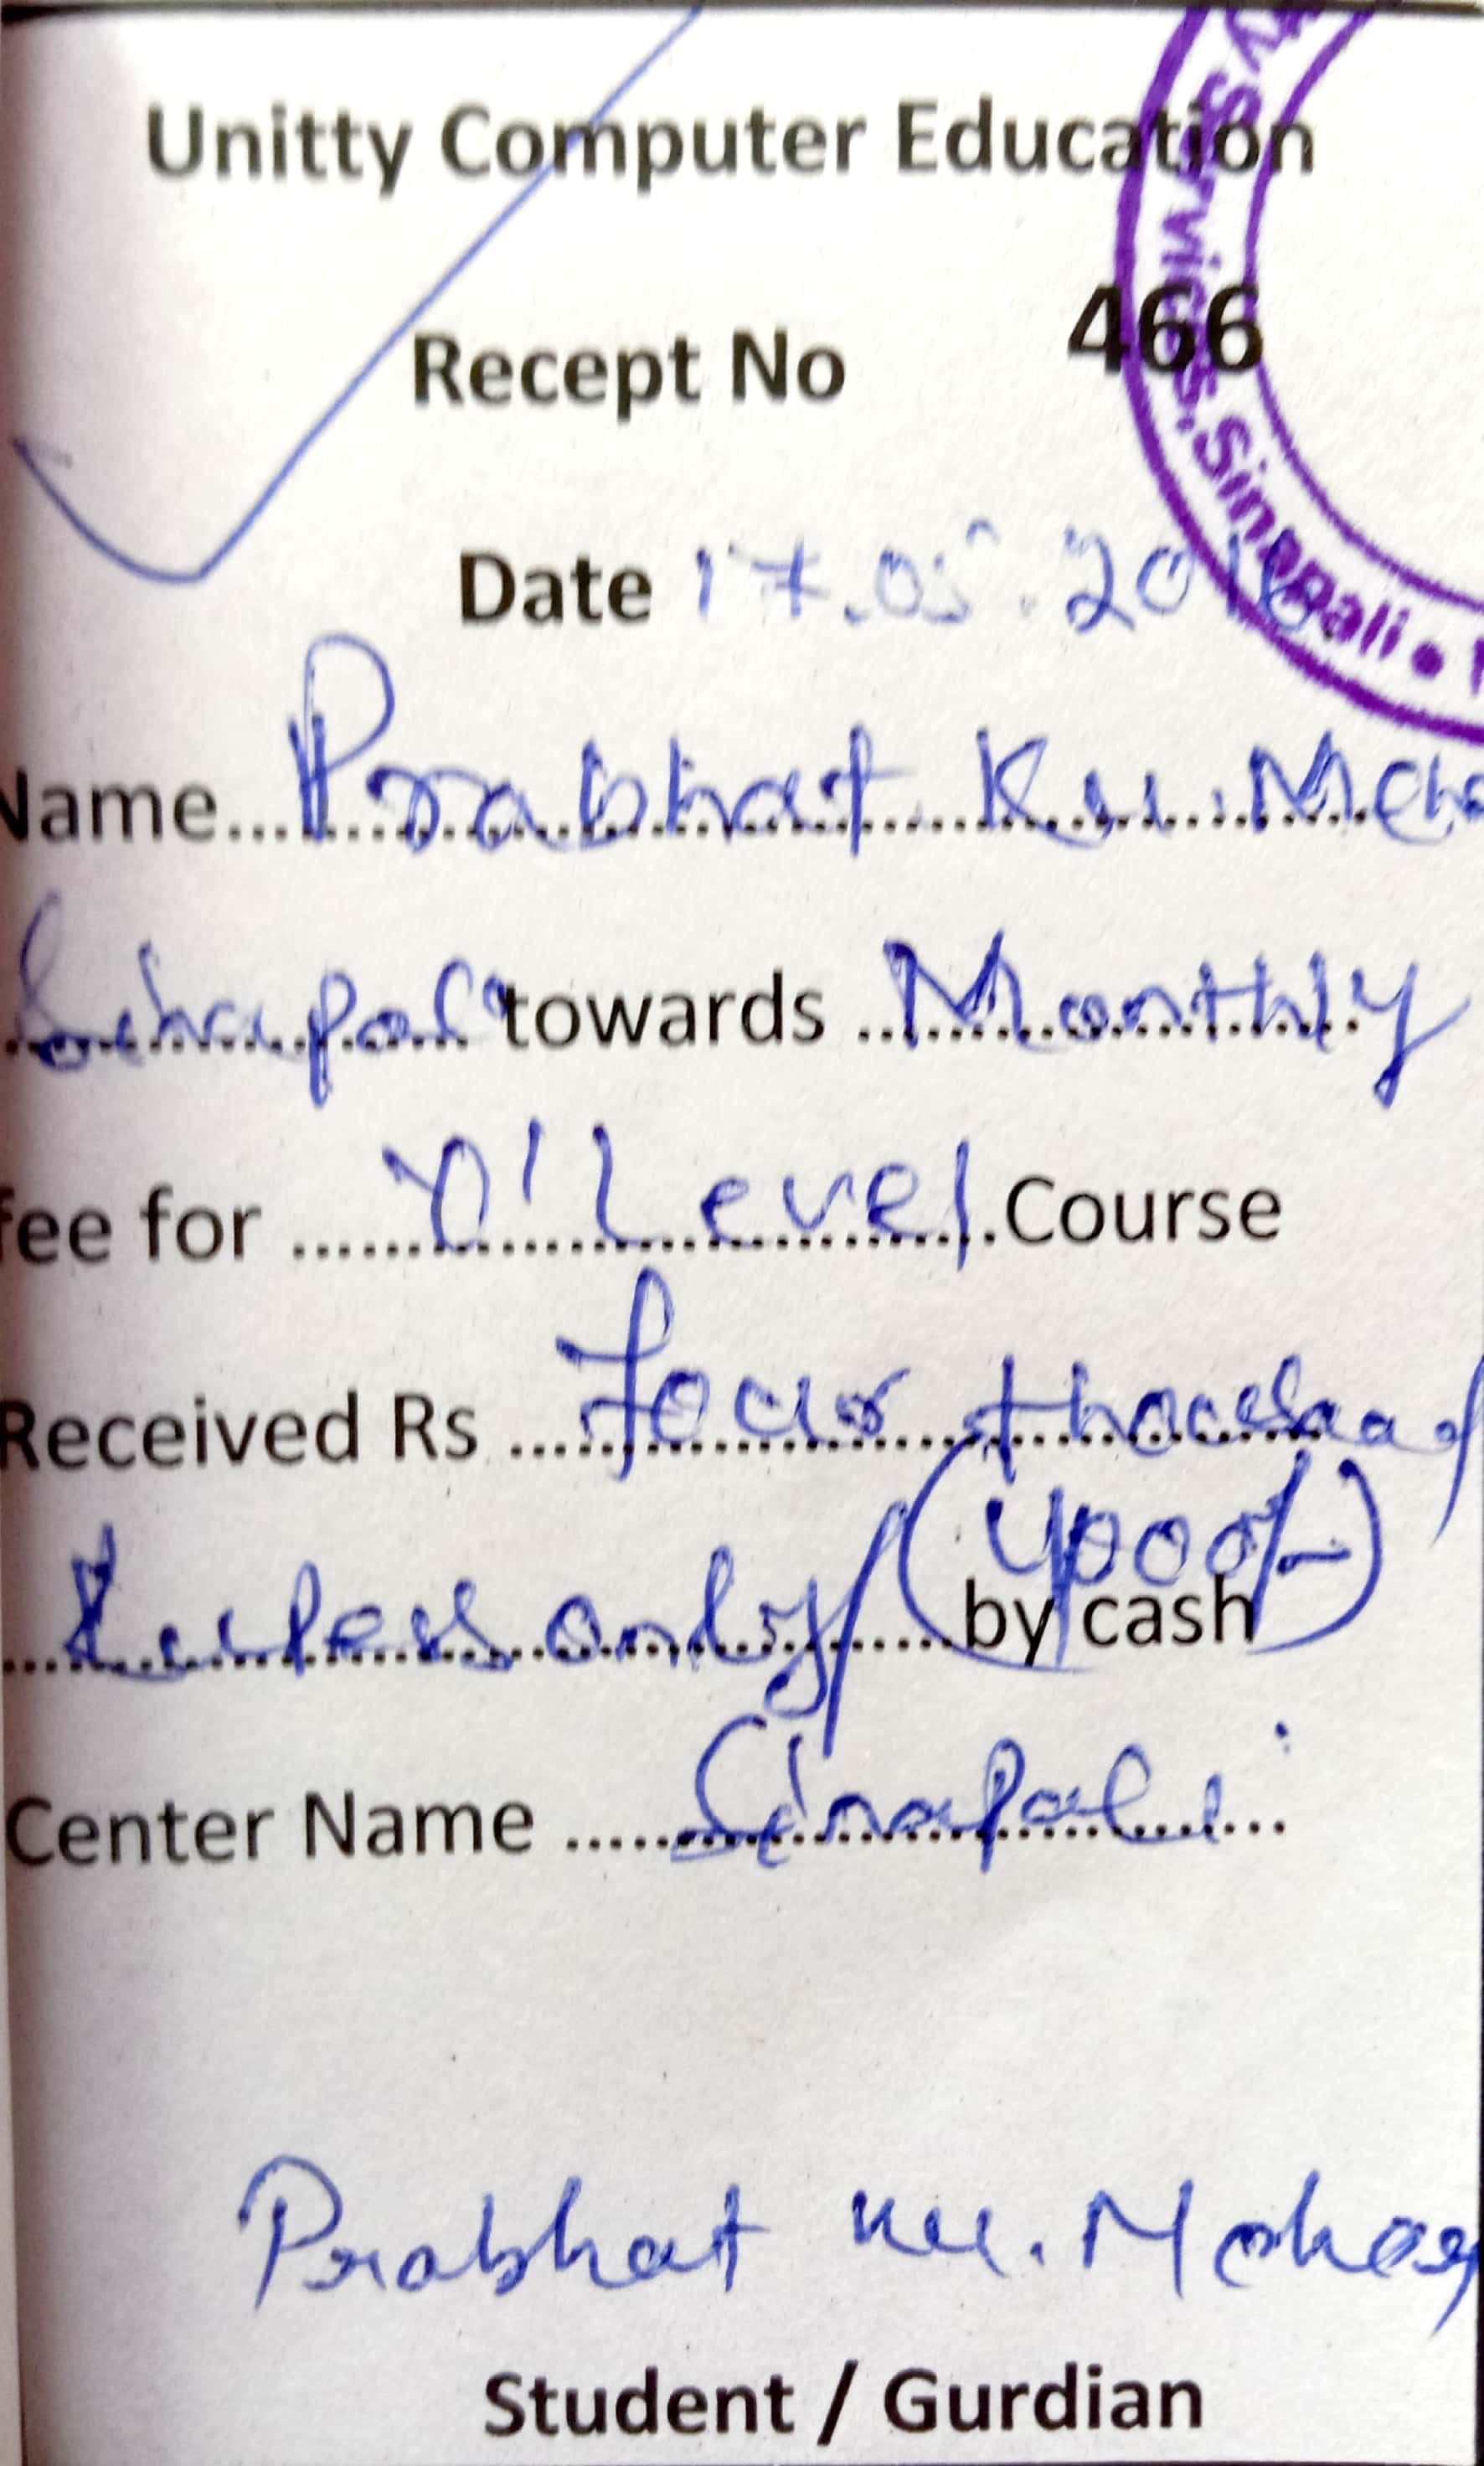 Unitty Computer Education
Recept No 466
Date 17.05.2018
Name... Prabhat Ku.
towards ... Monthly
fee for ... 'O' Level. Course
Received Rs ... Four thousand
Rupees only/ (4000/-) by cash
Center Name ... Sinapali
Prabhat Ku.
Student / Gurdian